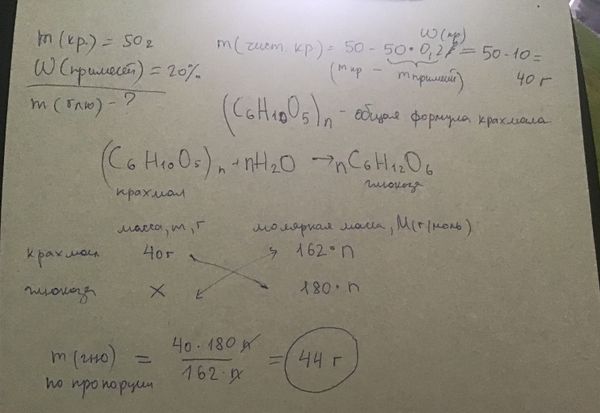 m(кр.) = 50г
W(примесей) = 20%
m(глю) - ?
W(пр)
m(чист. кр.) = 50 - 50 • 0,2 = 50 - 10 = 40 г
(mкр - mпримесей)
(C6H10O5)n - общая формула крахмала
(C6H10O5)n + nH2O → nC6H12O6
крахмал глюкоза
масса, m, г молярная масса, M(г/моль)
крахмал 40г 162 • n
глюкоза X 180 • n
m(глю) = 40 • 180 n / 162 • n = 44 г
по пропорции